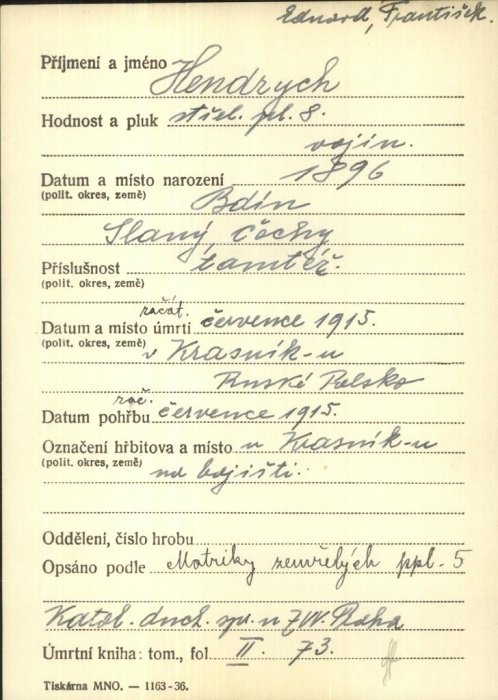 Eduard, František.
Příjmení a jméno Hendrych
Hodnost a pluk střel. pl. 8.
vojín.
Datum a místo narození 1896
(polit. okres, země) Bdín
Slaný, Čechy
Příslušnost tamtéž.
(polit. okres, země)
začát.
Datum a místo úmrtí července 1915.
(polit. okres, země) v Krasník-u
Ruské Polsko
zač.
Datum pohřbu července 1915.
Označení hřbitova a místo u Krasník-u
(polit. okres, země) na bojišti.
Oddělení, číslo hrobu
Opsáno podle Matriky zemřelých ppl. 5
Katol. duch. spr. u ZVV. Praha
Úmrtní kniha: tom., fol II. 73.
Tiskárna MNO. — 1163-36.